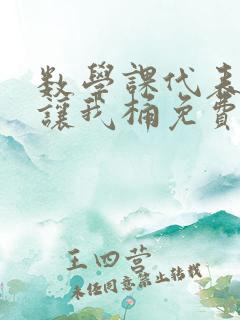 数學課代表
讓我桶免費
王四营
未经同意禁止转载